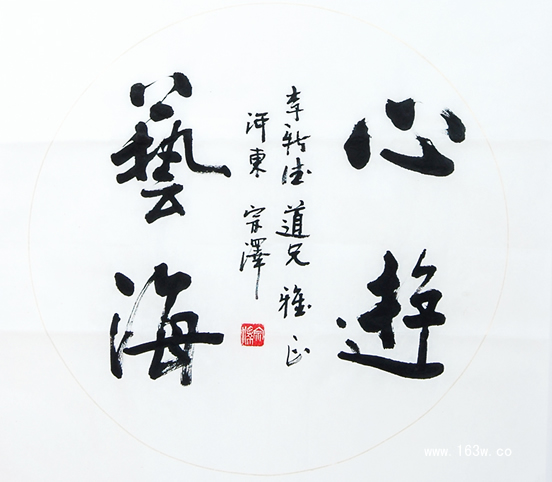 心遊
李新德道兄雅正
河東宗澤
藝海
www.163w.co